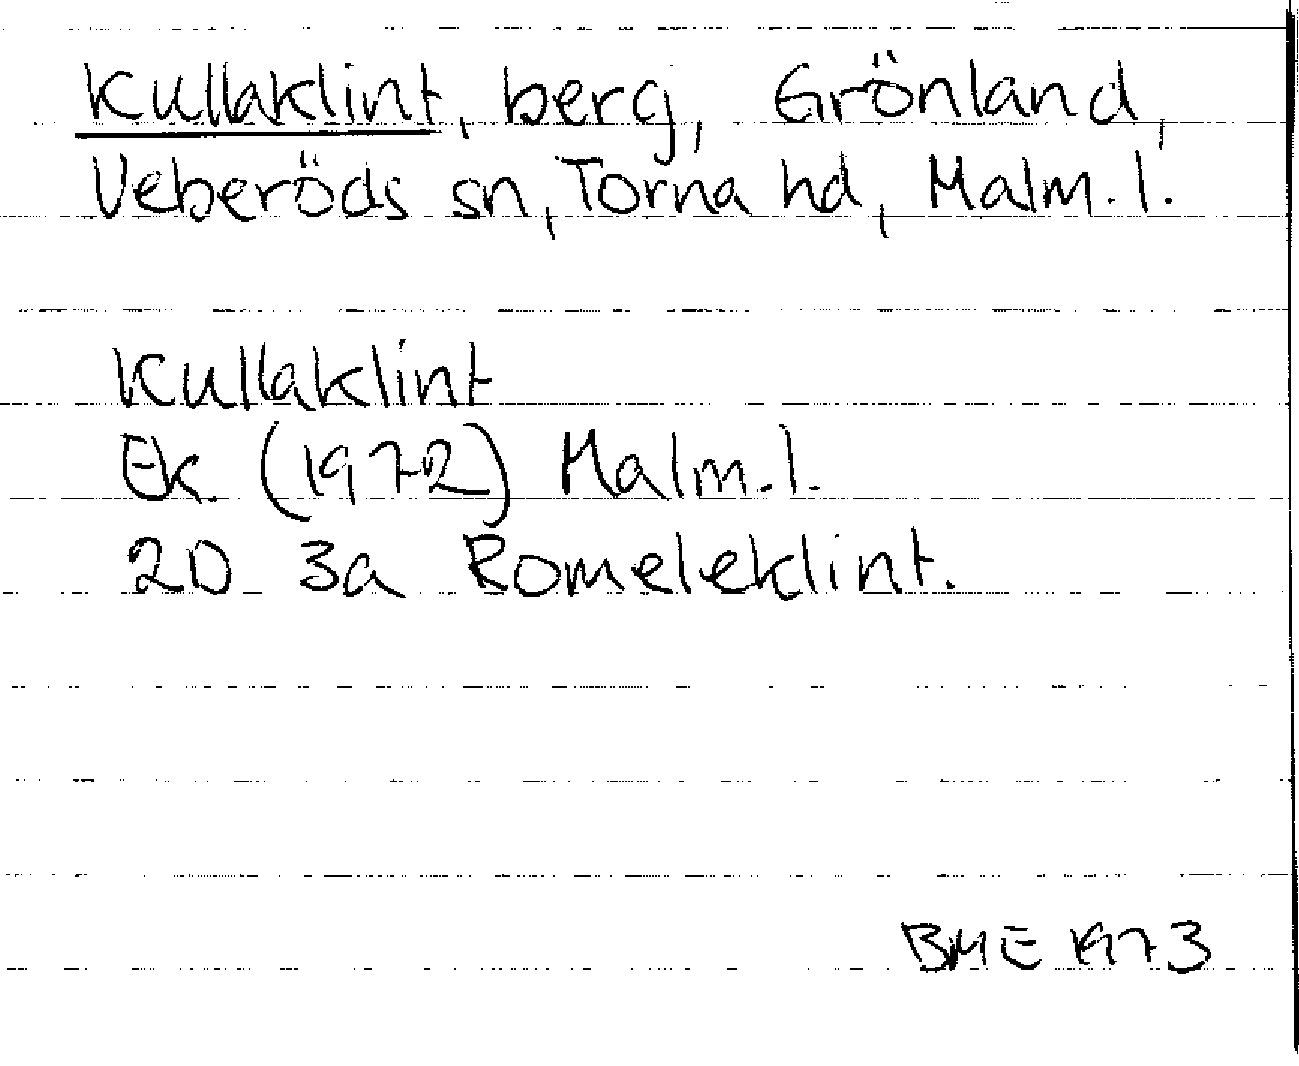 Kullaklint, berg, Grönland,
Veberöds sn, Torna hd, Malm. l.
Kullaklint
Ek. (1972) Malm. l.
2D 3a Romeleklint.
BME 1973